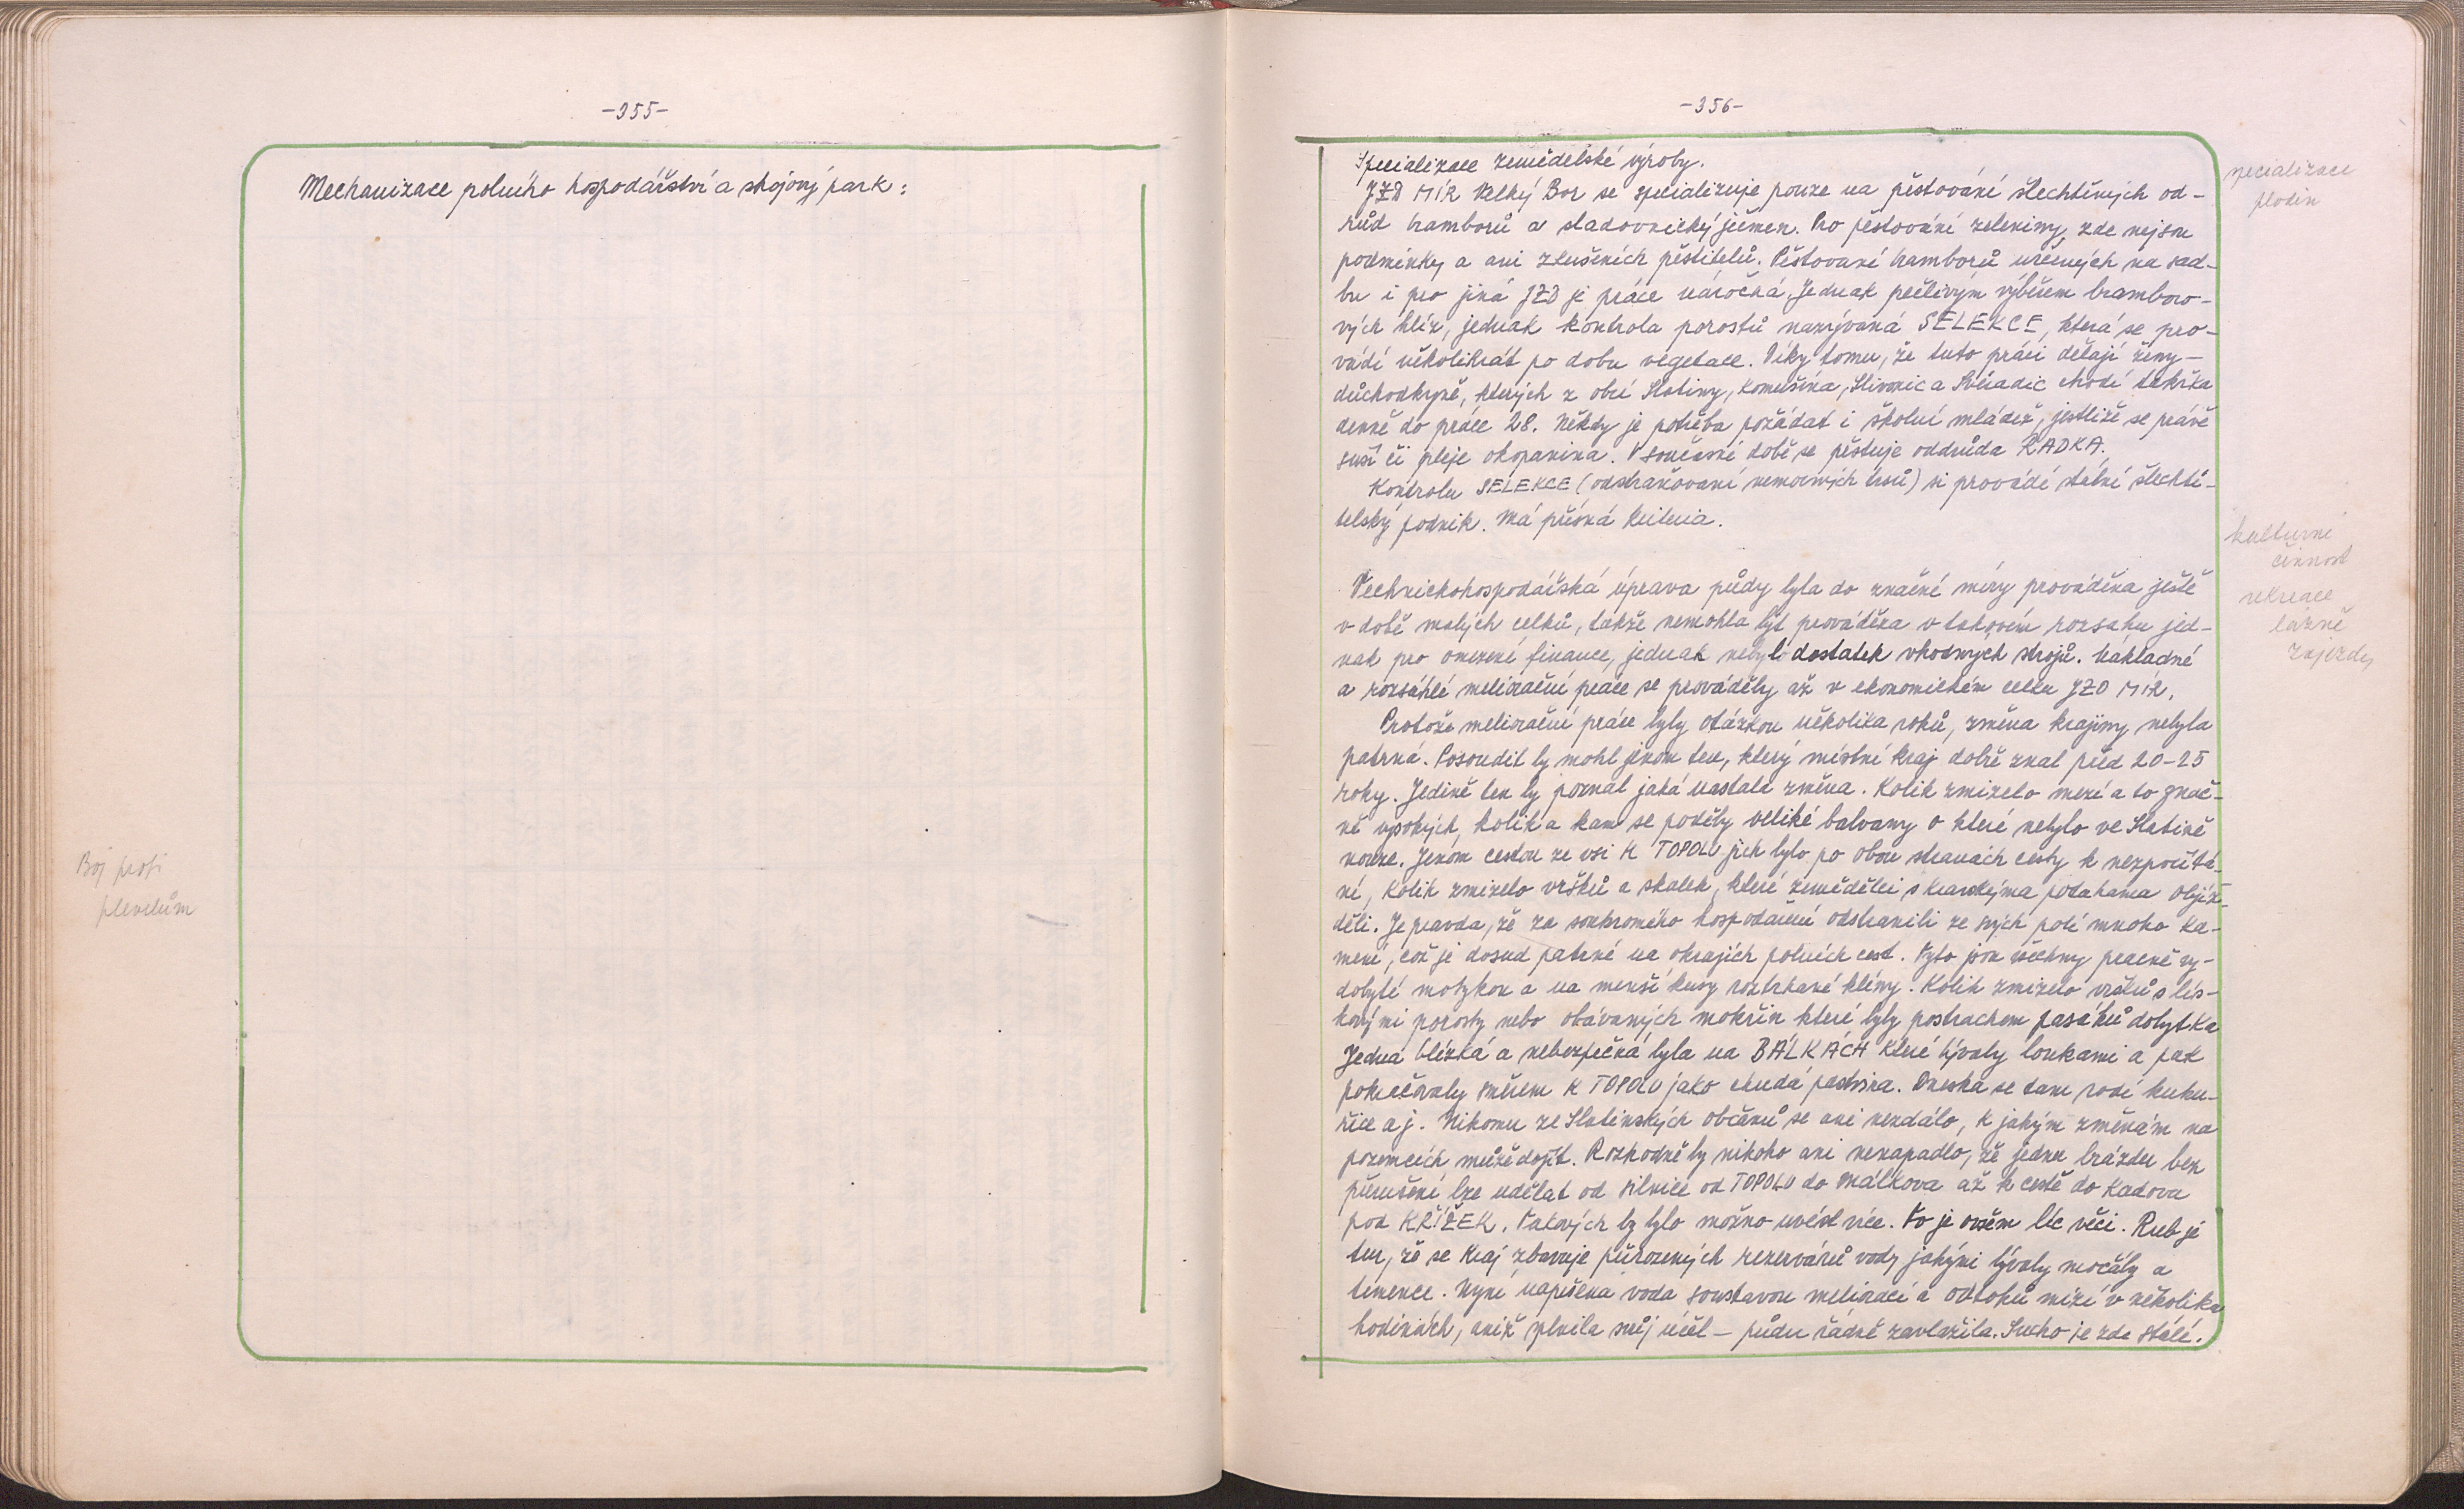 -355-
Mechanizace polního hospodářství a strojový park:
Boj proti
plevelům
-356-
Specializace zemědělské výroby.
JZD MÍR Velký Bor se specializuje pouze na pěstování šlechtěných od-
růd bramborů a sladovnický ječmen. Pro pěstování zeleniny, zde nejsou
podmínky a ani zkušených pěstitelů. Pěstování bramborů určených na sad-
bu i pro jiná JZD je práce náročná. Jednak pečlivým výběrem brambo-
vých hlíz, jednak kontrola porostů nazývaná SELEKCE, která se pro-
vádí několikrát po dobu vegetace. Díky tomu, že tuto práci dělají ženy -
důchodkyně, kterých z obcí Slatiny, Komušína, Slivonic a Svéradic chodí takřka
denně do práce 28. Někdy je potřeba požádat i školní mládež, jestliže se právě
suší či pleje okopanina. V současné době se pěstuje oddrůda RADKA.
Kontrolu SELEKCE (odstraňovaní nemocných trsů) si provádí státní šlechti-
telský podnik. Má přísná kriteria.
Technickohospodářská úprava půdy byla do značné míry prováděna ještě
v době malých celků, takže nemohla být prováděna v takovém rozsahu jed-
nak pro omezené finance, jednak nebyl dostatek vhodných strojů. Nákladné
a rozsáhlé meliorační práce se prováděly až v ekonomickém celku JZD MÍR.
Protože meliorační práce byly otázkou několika roků, změna krajiny nebyla
patrná. Posoudit by mohl jenom ten, který místní kraj dobře znal před 20-25
roky. Jedině ten by poznal jaká nastala změna. Kolik zmizelo mezí a to znač-
ně vysokých, kolik a kam se poděly veliké balvany o které nebylo ve Slatině
nouze. Jenom cestou ze vsi k TOPOLU jich bylo po obou stranách cesty k nezpočítá-
ní, kolik zmizelo vršků a skalek, které zemědělci s kravskýma potahama objíž-
děli. Je pravda, že za soukromého hospodaření odstranili ze svých polí mnoho ka-
mení, což je dosud patrné na okrajích polních cest. Tyto jsou všechny pracně vy-
dobyté motykou a na menší kusy roztrhané klíny. Kolik zmizelo vršků s lís-
kovými porosty nebo obávaných mokřin které byly postrachem pasáků dobytka
Jedna blízká a nebezpečná byla na BÁLKÁCH které bývaly loukami a pak
pokračovaly směrem k TOPOLU jako chudá pastvina. Dneska se tam rodí kuku-
řice aj. Nikomu ze Slatinských občanů se ani nezdálo, k jakým změnám na
pozemcích může dojít. Rozhodně by nikoho ani nenapadlo, že jednu brázdu bez
přerušení lze udělat od silnice od TOPOLU do Málkova až k cestě do Kadova
pod KŘÍŽEK. Takových by bylo možno uvést více. To je ovšem líc věci. Rub je
ten, že se kraj zbavuje přirozených rezervárů vody jakými bývaly močály a
temence. Nyní napršená voda soustavou meliorací a odtoků mizí v několika
hodinách, aniž splnila svůj účel - půdu řádně zavlažila. Sucho je zde stálé.
specializace
plodin
kulturní
činnost
rekreace
lázně
zájezdy